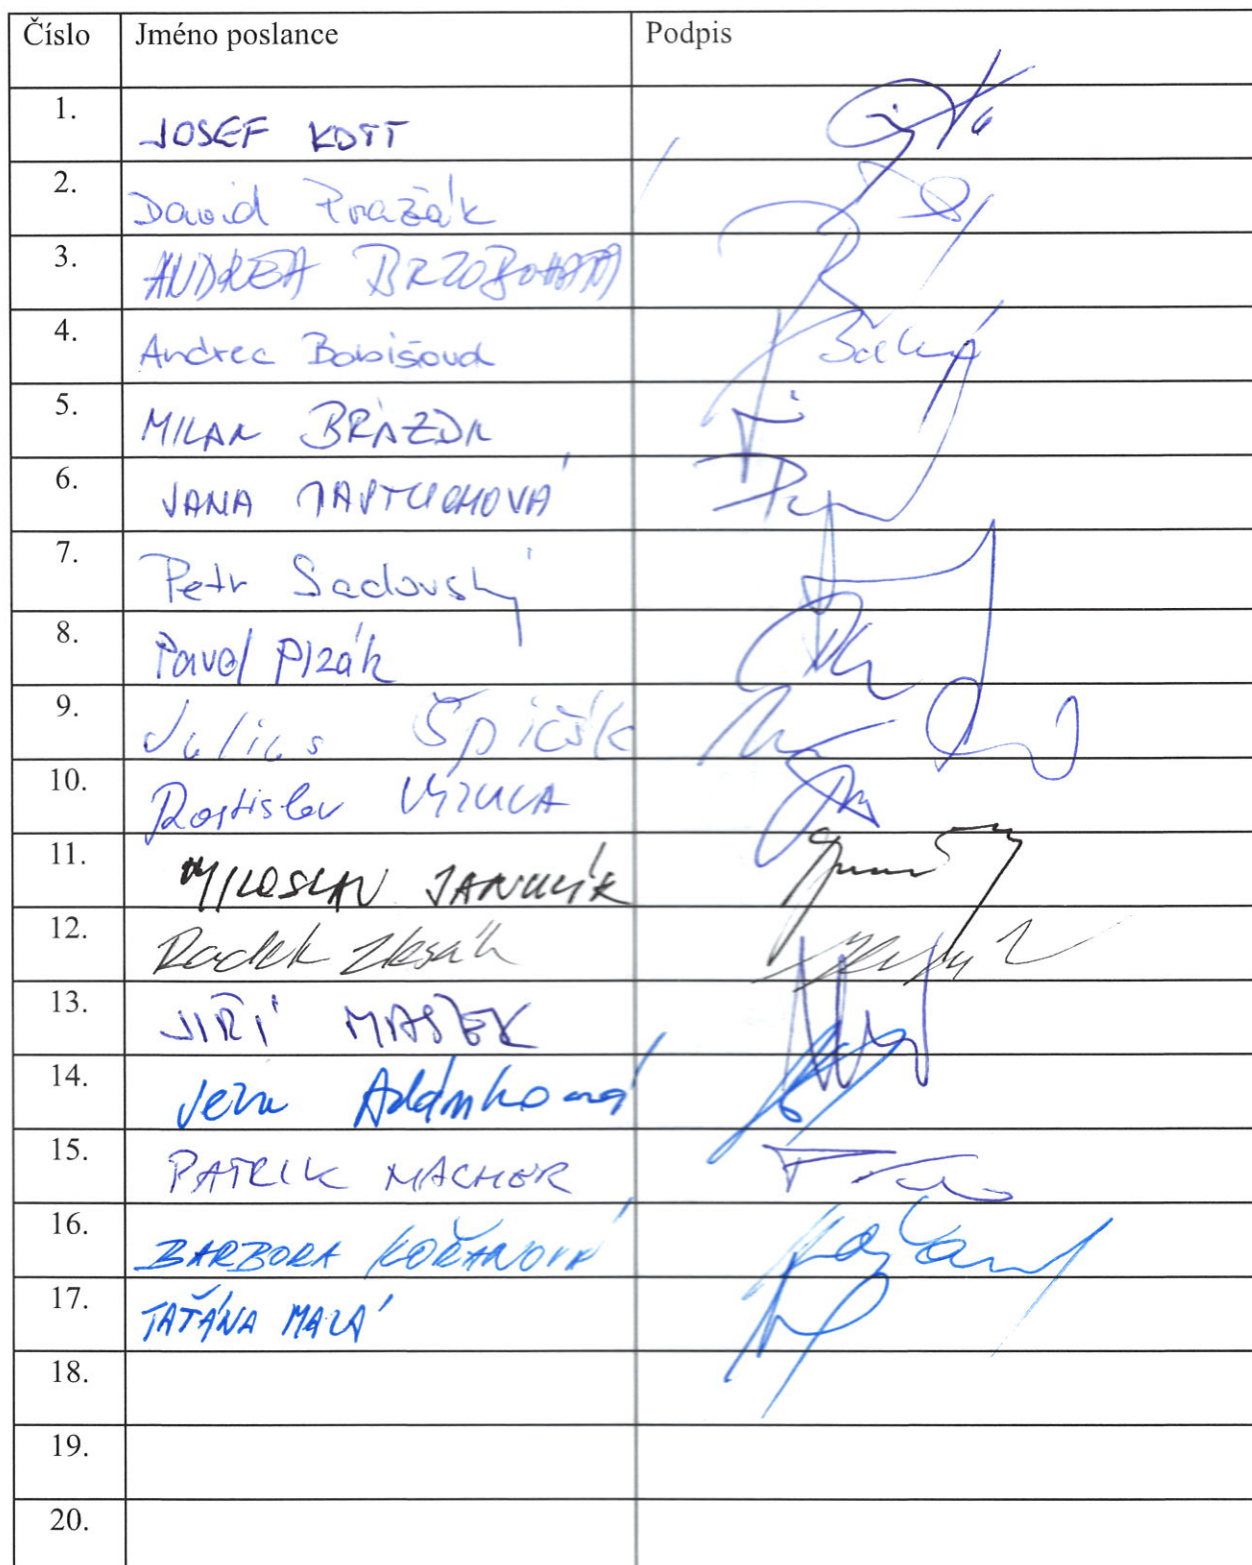 Číslo Jméno poslance Podpis
1. JOSEF KOTT
2. David Pražák
3. ANDREA BRZOBOHATÁ
4. Andrea Babišová
5. MILAN BRÁZDIL
6. JANA PASTUCHOVÁ
7. Petr Sadovský
8. Pavel Plzák
9. Julius Špičák
10. Rostislav VYZULA
11. MILOSLAV JANULÍK
12. Radek Zlesák
13. JIŘÍ MAŠEK
14. Věra Adámková
15. PATRIK NACHER
16. BARBORA KOŘANOVÁ
17. TAŤÁNA MALÁ
18.
19.
20.